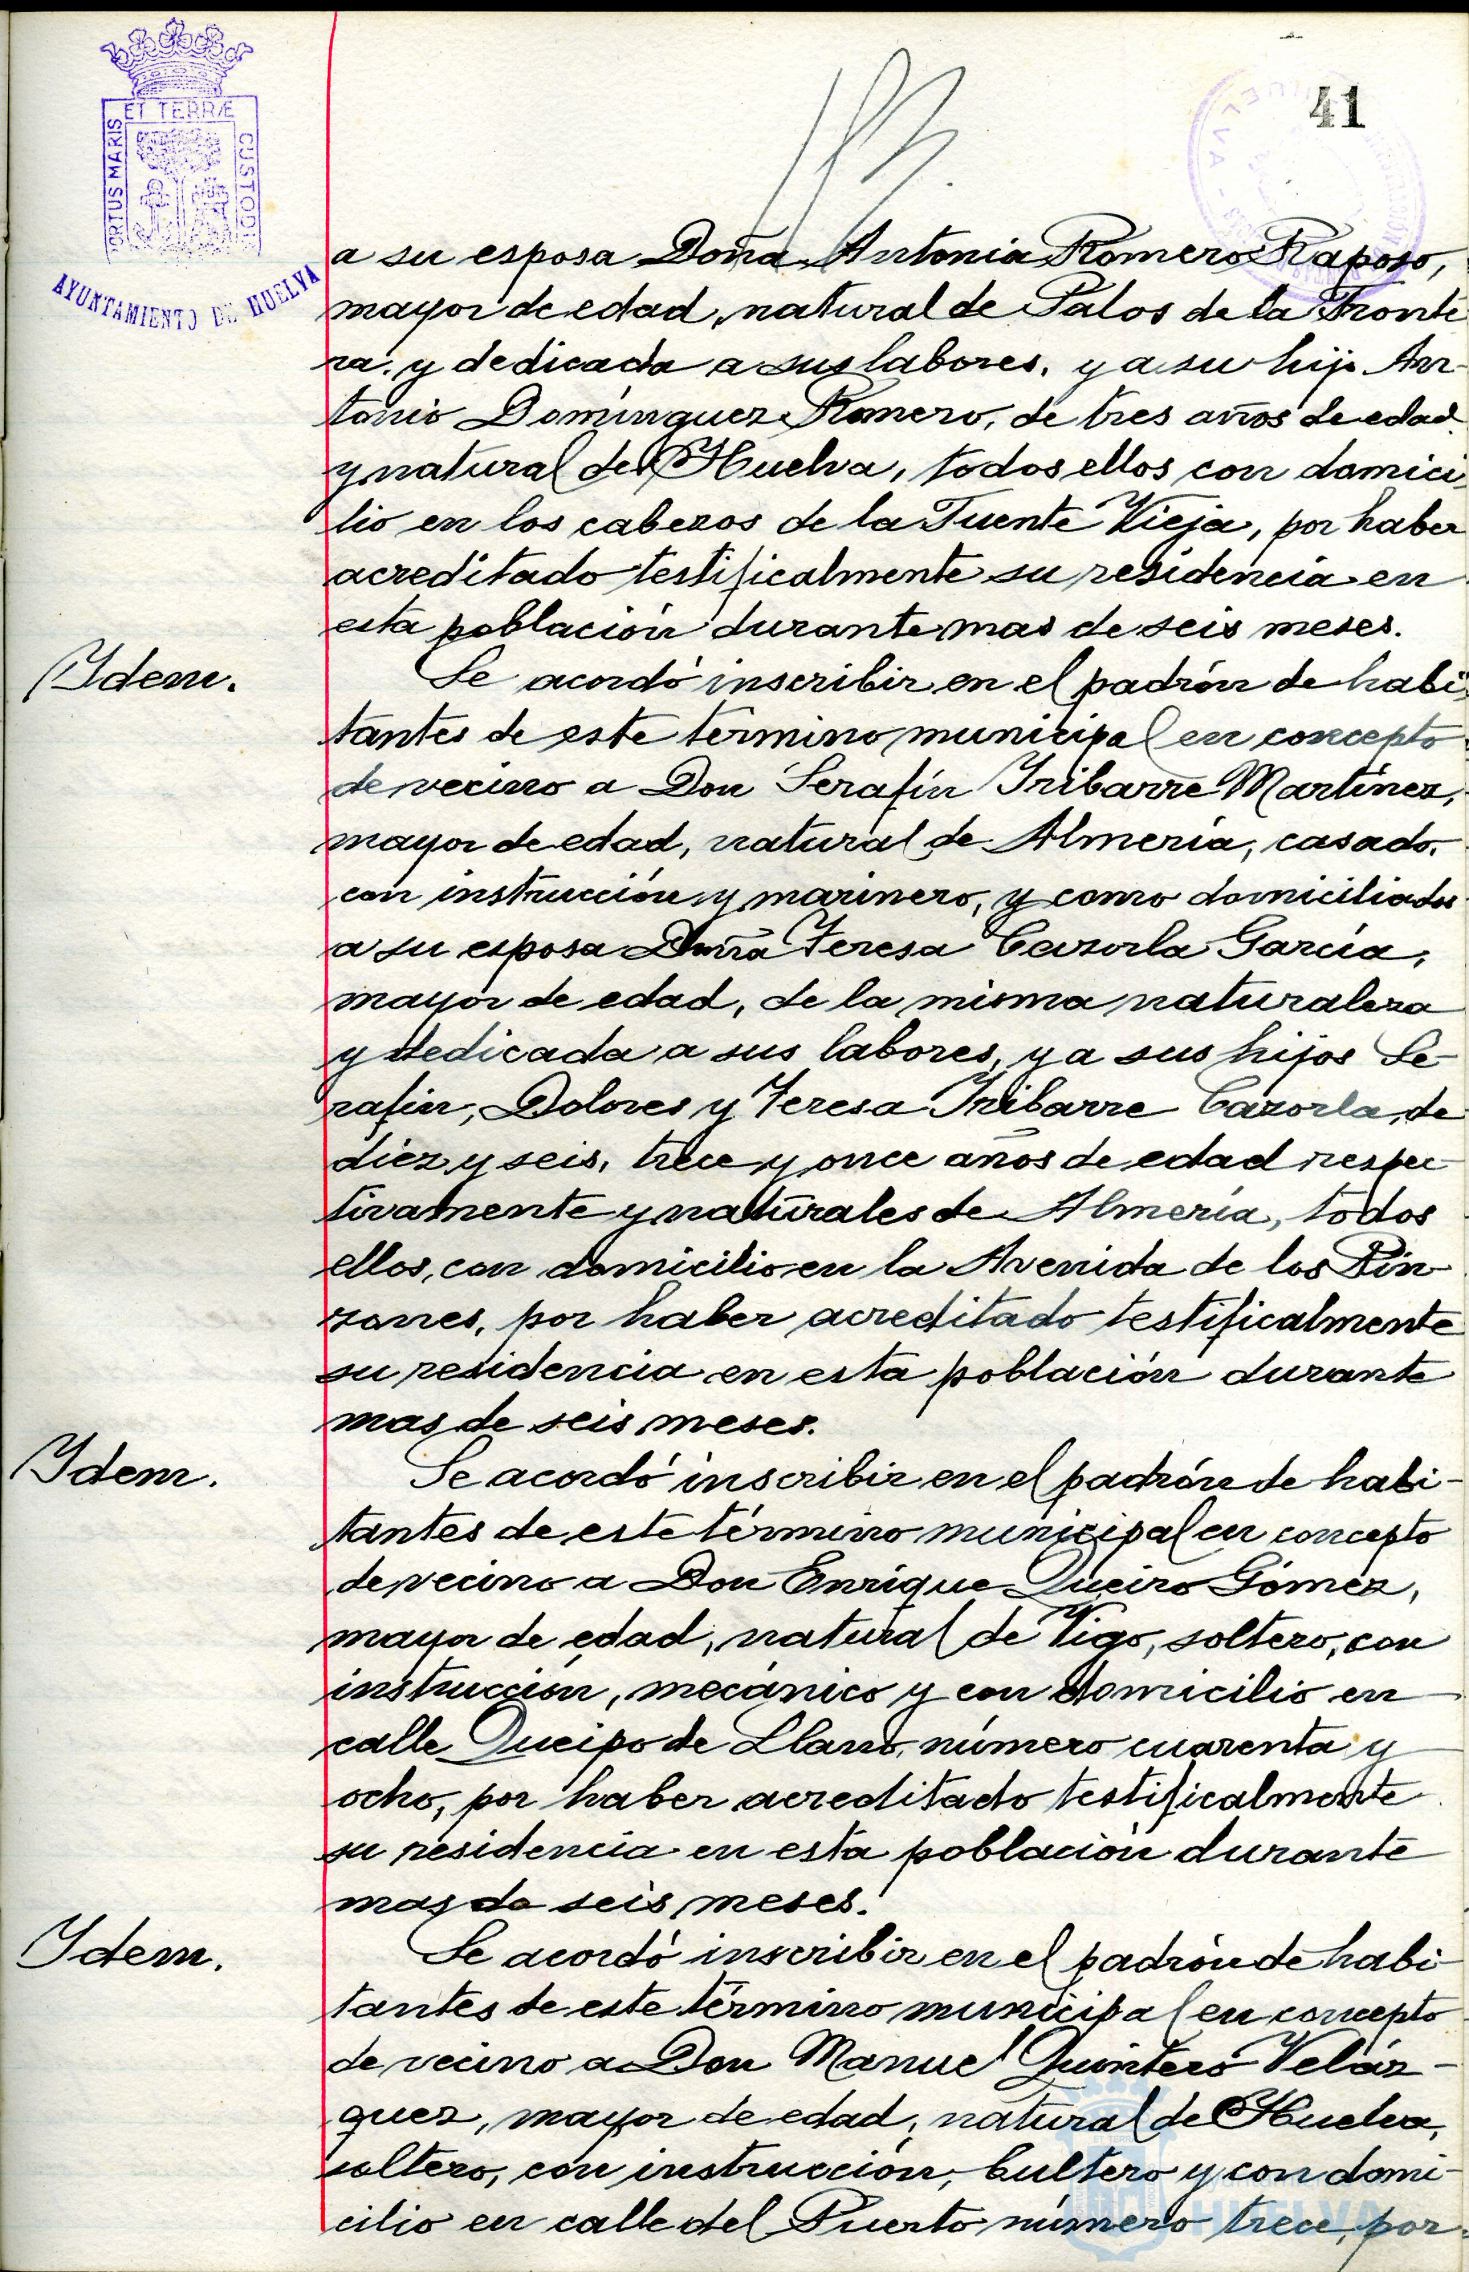 41
ET TERRÆ
PORTUS MARIS
CUSTODI
AYUNTAMIENTO DE HUELVA
a su esposa Doña Antonia Romero Raposo,
mayor de edad, natural de Palos de la Fronte
ra, y dedicada a sus labores, y a su hijo An-
tonio Domínguez Romero, de tres años de edad
y natural de Huelva, todos ellos con domici
lio en los cabezos de la Fuente Vieja, por haber
acreditado testificalmente su residencia en
esta población durante mas de seis meses.
Idem.
Se acordó inscribir en el padrón de habi
tantes de este término municipal en concepto
de vecino a Don Serafín Iribarre Martínez,
mayor de edad, natural de Almería, casado,
con instrucción y marinero, y como domiciliados
a su esposa Doña Teresa Cazorla García,
mayor de edad, de la misma naturaleza
y dedicada a sus labores, y a sus hijos Se-
rafín, Dolores y Teresa Iribarre Cazorla, de
diez y seis, trece y once años de edad respec-
tivamente y naturales de Almería, todos
ellos, con domicilio en la Avenida de los Pin-
zones, por haber acreditado testificalmente
su residencia en esta población durante
mas de seis meses.
Idem.
Se acordó inscribir en el padrón de habi-
tantes de este término municipal en concepto
de vecino a Don Enrique Queiro Gómez,
mayor de edad, natural de Vigo, soltero, con
instrucción, mecánico y con domicilio en
calle Queipo de Llano, número cuarenta y
ocho, por haber acreditado testificalmente
su residencia en esta población durante
mas de seis meses.
Idem.
Se acordó inscribir en el padrón de habi-
tantes de este término municipal en concepto
de vecino a Don Manuel Quintero Veláz-
quez, mayor de edad, natural de Huelva,
soltero, con instrucción, bultero y con domi-
cilio en calle del Puerto número trece, por
HUELVA